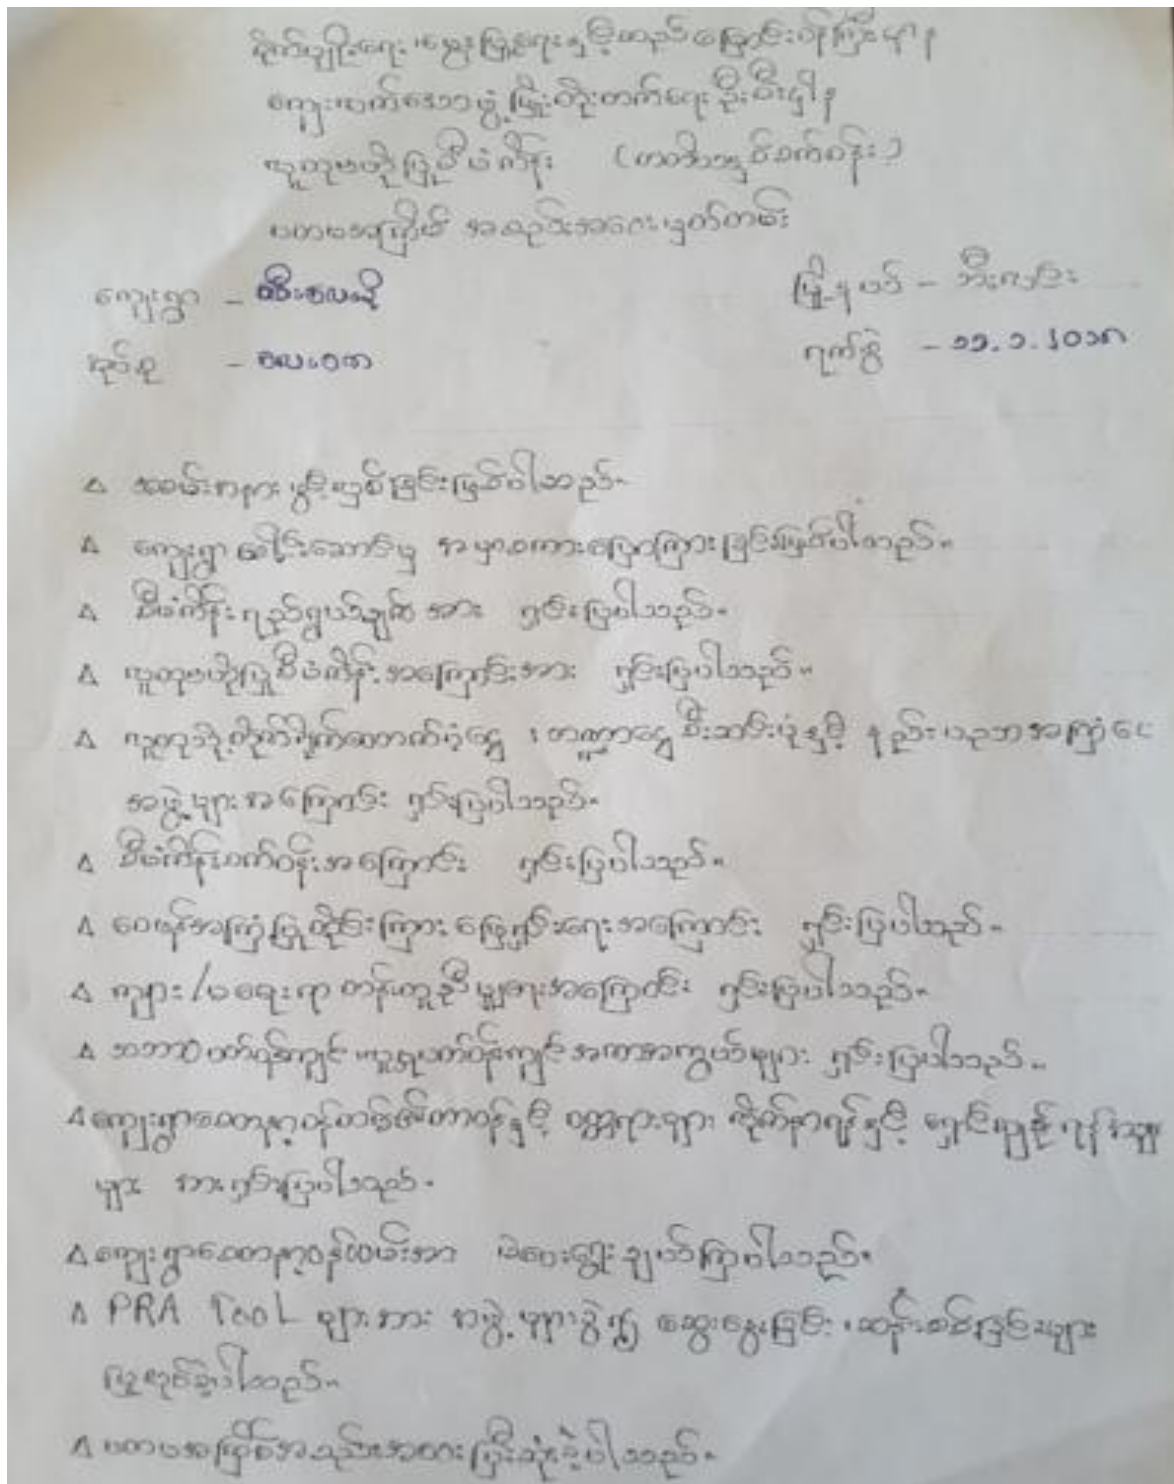 စိုက်ပျိုးရေး၊ မွေးမြူရေးနှင့်ဆည်မြောင်းဝန်ကြီးဌာန
ကျေးလက်ဒေသဖွံ့ဖြိုးတိုးတက်ရေးဦးစီးဌါန
လူထုဗဟိုပြုစီမံကိန်း (တတိယနှစ်စက်ဝန်း)
ပထမအကြိမ် အစည်းအဝေးမှတ်တမ်း
ကျေးရွာ -
မြို့နယ် - ဘီးလင်း
အုပ်စု -
ရက်စွဲ - ၁၁.၁.၂၀၁၈
∆ အခမ်းအနား ဖွင့်လှစ်ခြင်းဖြစ်ပါသည်။
∆ ကျေးရွာ ခေါင်းဆောင်မှ အမှာစကားပြောကြားခြင်းဖြစ်ပါသည်။
∆ စီမံကိန်းရည်ရွယ်ချက်အား ရှင်းပြပါသည်။
∆ လူထုဗဟိုပြုစီမံကိန်းအကြောင်းအား ရှင်းပြပါသည်။
∆ လူထုသို့တိုက်ရိုက်ထောက်ပံ့ငွေ ၊ ဘဏ္ဍာငွေစီးဆင်းပုံနှင့် နည်းပညာအကြံပေး
အဖွဲ့များအကြောင်း ရှင်းပြပါသည်။
∆ စီမံကိန်းစက်ဝန်းအကြောင်း ရှင်းပြပါသည်။
∆ ဝေဖန်အကြံပြုတိုင်ကြား ဖြေရှင်းရေးအကြောင်း ရှင်းပြပါသည်။
∆ ကျား/မရေးရာ တန်းတူညီမျှရေးအကြောင်း ရှင်းပြပါသည်။
∆ သဘာဝပတ်ဝန်းကျင် လူမှုပတ်ဝန်းကျင်အကာအကွယ်များ ရှင်းပြပါသည်။
∆ ကျေးရွာစေတနာ့ဝန်ထမ်း၏တာဝန်နှင့် ဝတ္တရားများ လိုက်နာရန်နှင့် ရှောင်ကြဉ်ရန်အချက်
များ အားရှင်းပြပါသည်။
∆ ကျေးရွာစေတနာ့ဝန်ထမ်းအား မဲပေးရွေးချယ်ကြပါသည်။
∆ PRA Tool များအား အဖွဲ့များခွဲ၍ ဆွေးနွေးခြင်း ၊ ဆန်းစစ်ခြင်းများ
ပြုလုပ်ခဲ့ပါသည်။
∆ ပထမအကြိမ်အစည်းအဝေးပြီးဆုံးခဲ့ပါသည်။